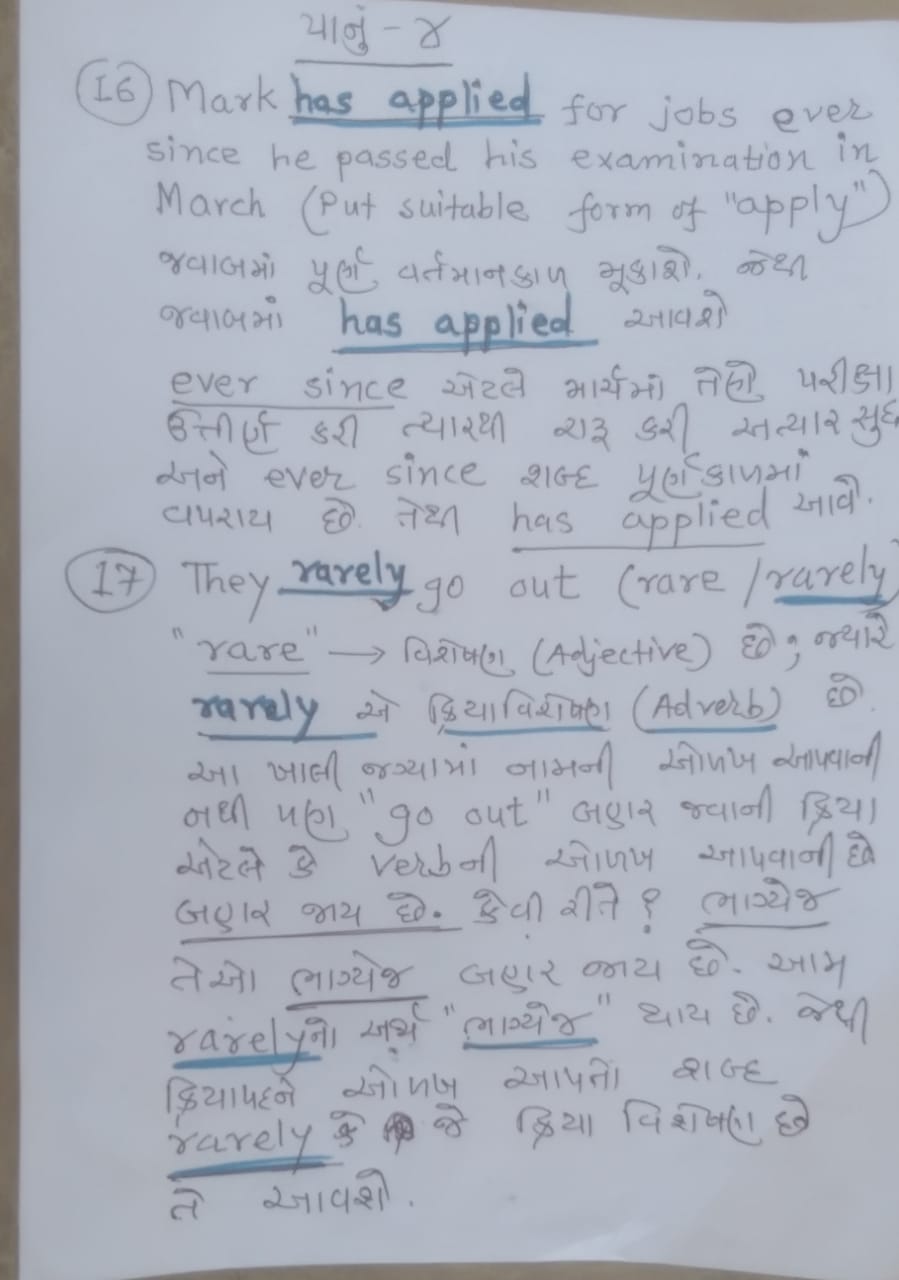 પાનું - ૪
(16) Mark has applied for jobs ever
since he passed his examination in
March (Put suitable form of "apply")
જવાબમાં પૂર્ણ વર્તમાનકાળ મૂકાશે. જેથી
જવાબમાં has applied આવશે
ever since એટલે માર્ચમાં તેણે પરીક્ષા
ઉત્તીર્ણ કરી ત્યારથી શરૂ કરી અત્યાર સુધ
અને ever since શબ્દ પૂર્ણકાળમાં
વપરાય છે. તેથી has applied આવે.
(17) They rarely go out (rare / rarely)
"rare" → વિશેષણ (Adjective) છે; જ્યારે
rarely એ ક્રિયાવિશેષણ (Adverb) છે.
આ ખાલી જગ્યામાં નામની ઓળખ આપવાની
નથી પણ "go out" બહાર જવાની ક્રિયા
એટલે કે verbની ઓળખ આપવાની છે
બહાર જાય છે. કેવી રીતે ? ભાગ્યેજ
તેઓ ભાગ્યેજ બહાર જાય છે. આમ
rarelyનો અર્થ "ભાગ્યેજ" થાય છે. જેથી
ક્રિયાપદને ઓળખ આપતો શબ્દ
rarely કે જે ક્રિયા વિશેષણ છે
તે આવશે.